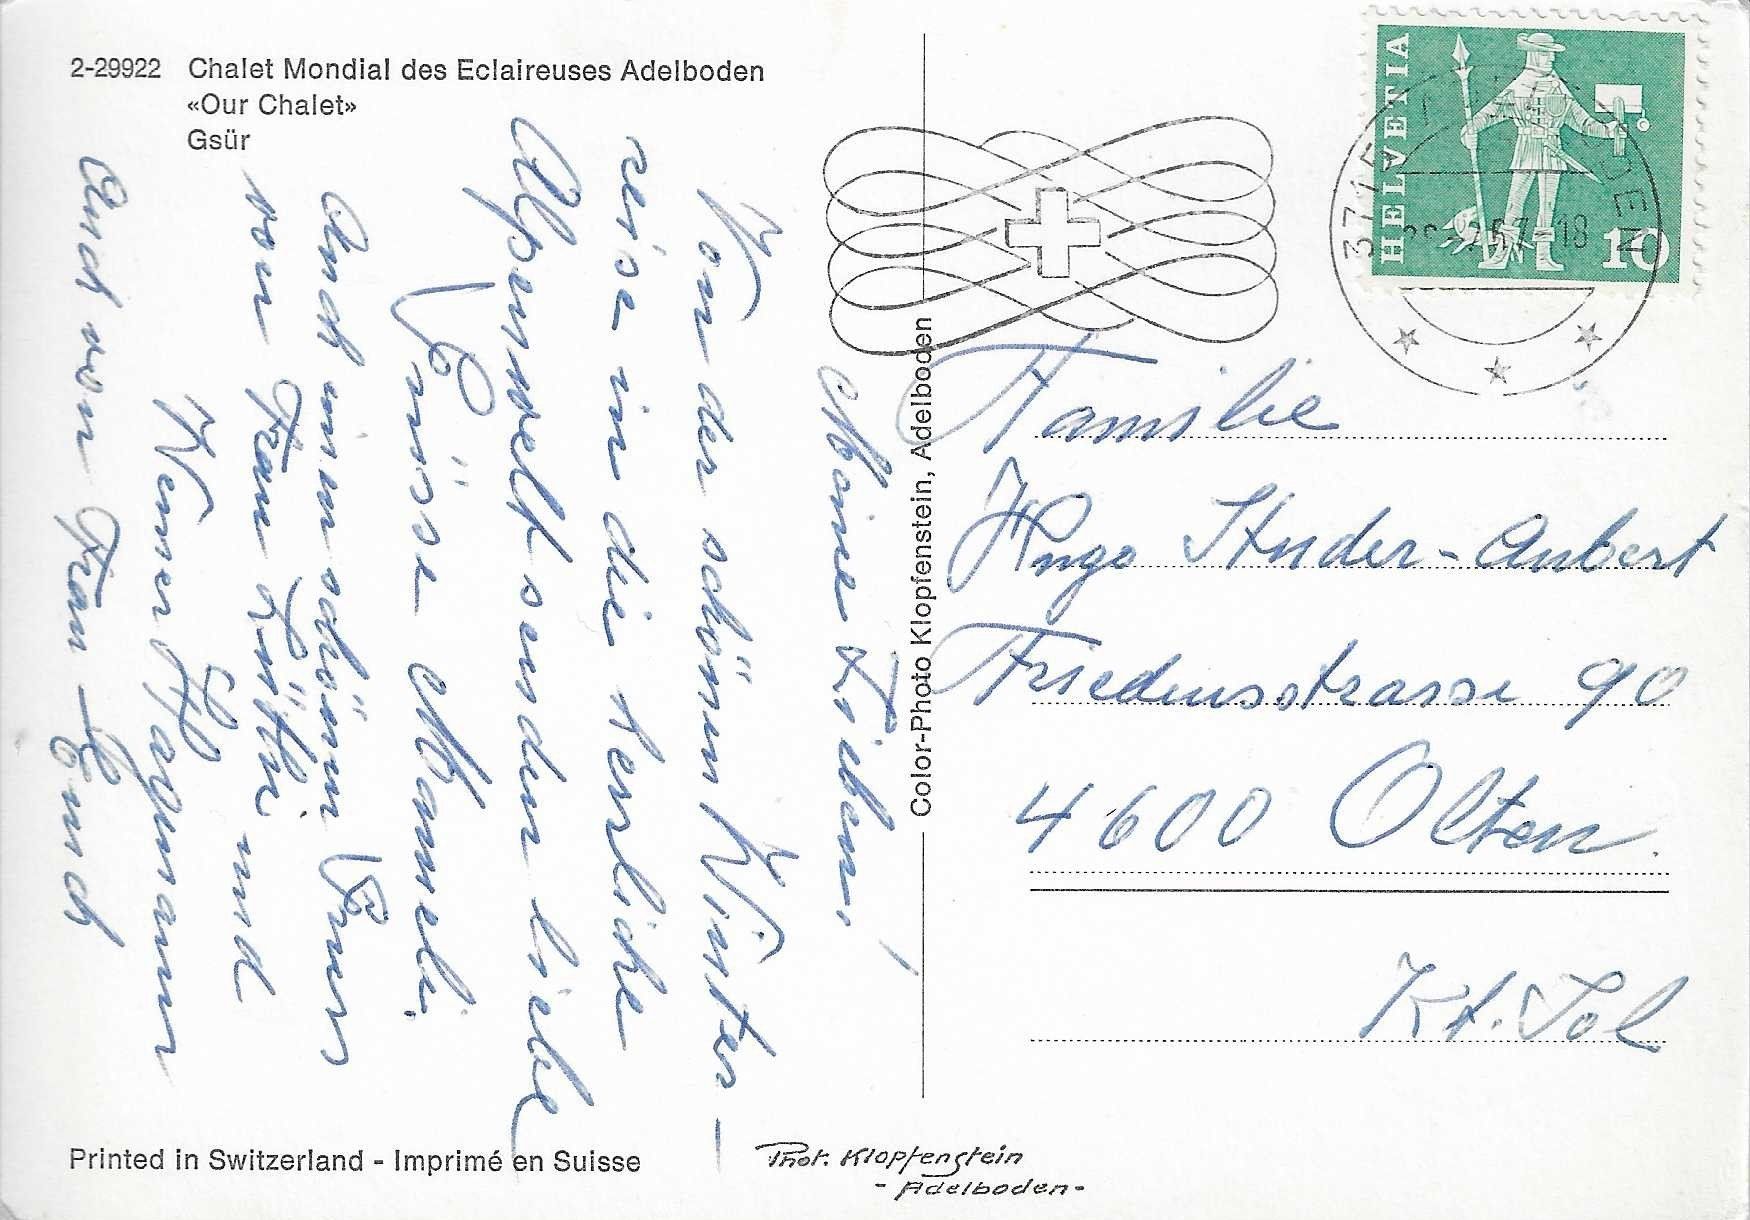 2-29922 Chalet Mondial des Eclaireuses Adelboden
«Our Chalet»
Gsür
Meine Lieben!
Von der schönen Winter-
reise in die herrliche
Alpenwelt senden liebe
Grüsse Mameli
Auch einen schönen Gruss
von Frau Lüthi und
Werner Hagmann
Auch von Frau
Color-Photo Klopfenstein, Adelboden
HELVETIA
10
3715 ADELBODEN
67-18
Familie
Hugo Studer-Aubert
Friedensstrasse 90
4600 Olten.
Kt. Sol
Printed in Switzerland - Imprimé en Suisse
Phot. Klopfenstein
- Adelboden -